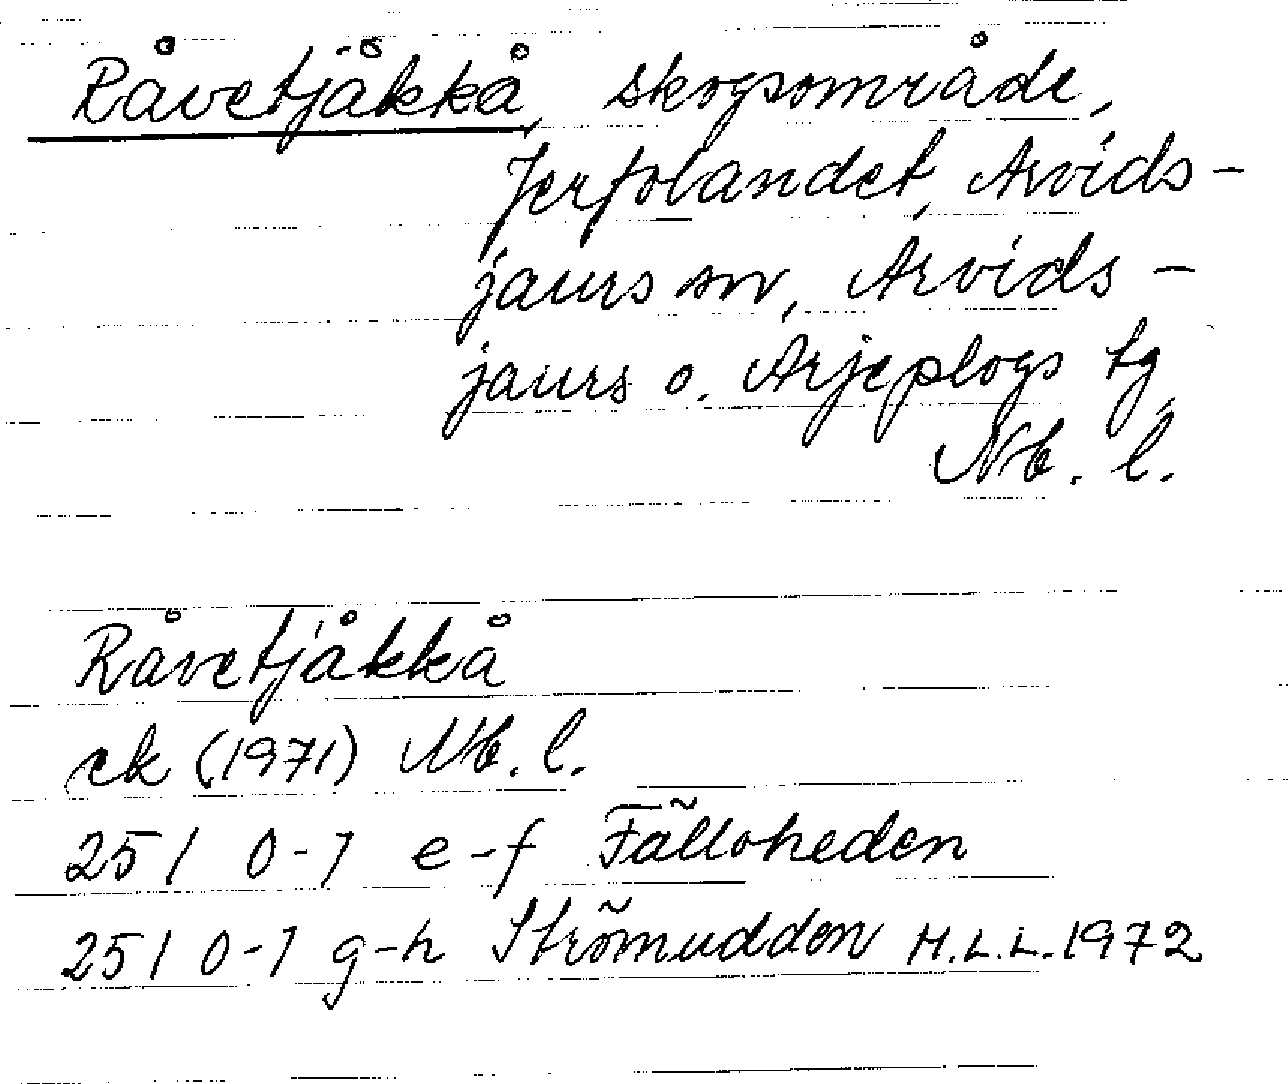 Råvetjåkkå, skogsområde,
Jerfolandet, Arvids-
jaurs sn, Arvids-
jaurs o. Arjeplogs tg
Nb. l.
Råvetjåkkå
ek (1971) Nb. l.
25 I 0-1 e-f Fälloheden
25 I 0-1 g-h Strömudden H.L.L. 1972